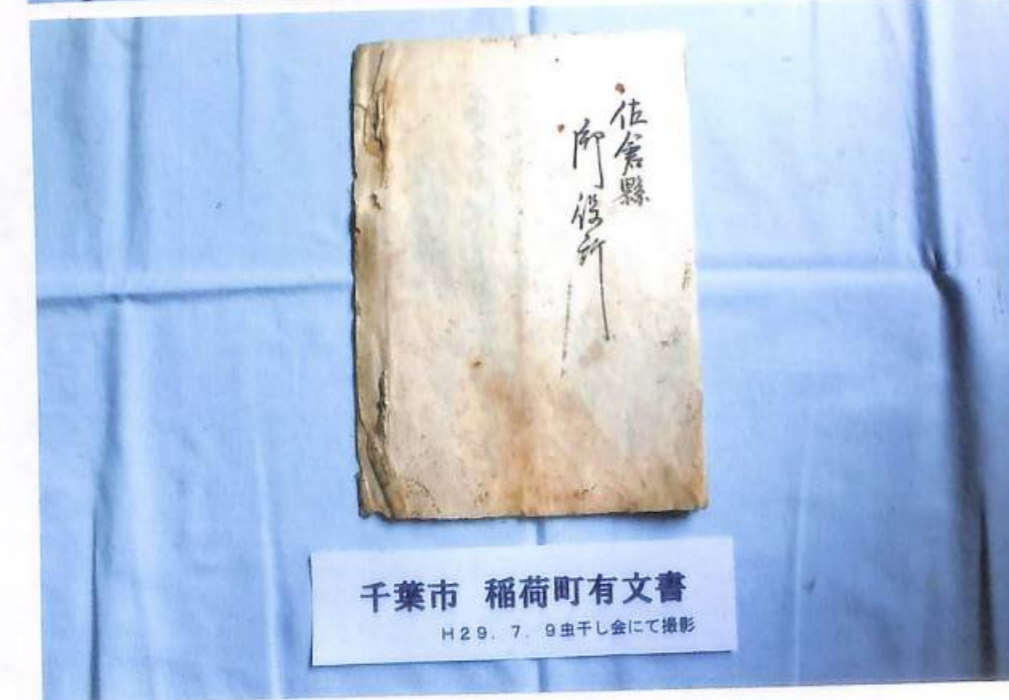 佐倉縣
御役所
千葉市 稲荷町有文書
H29. 7. 9虫干し会にて撮影